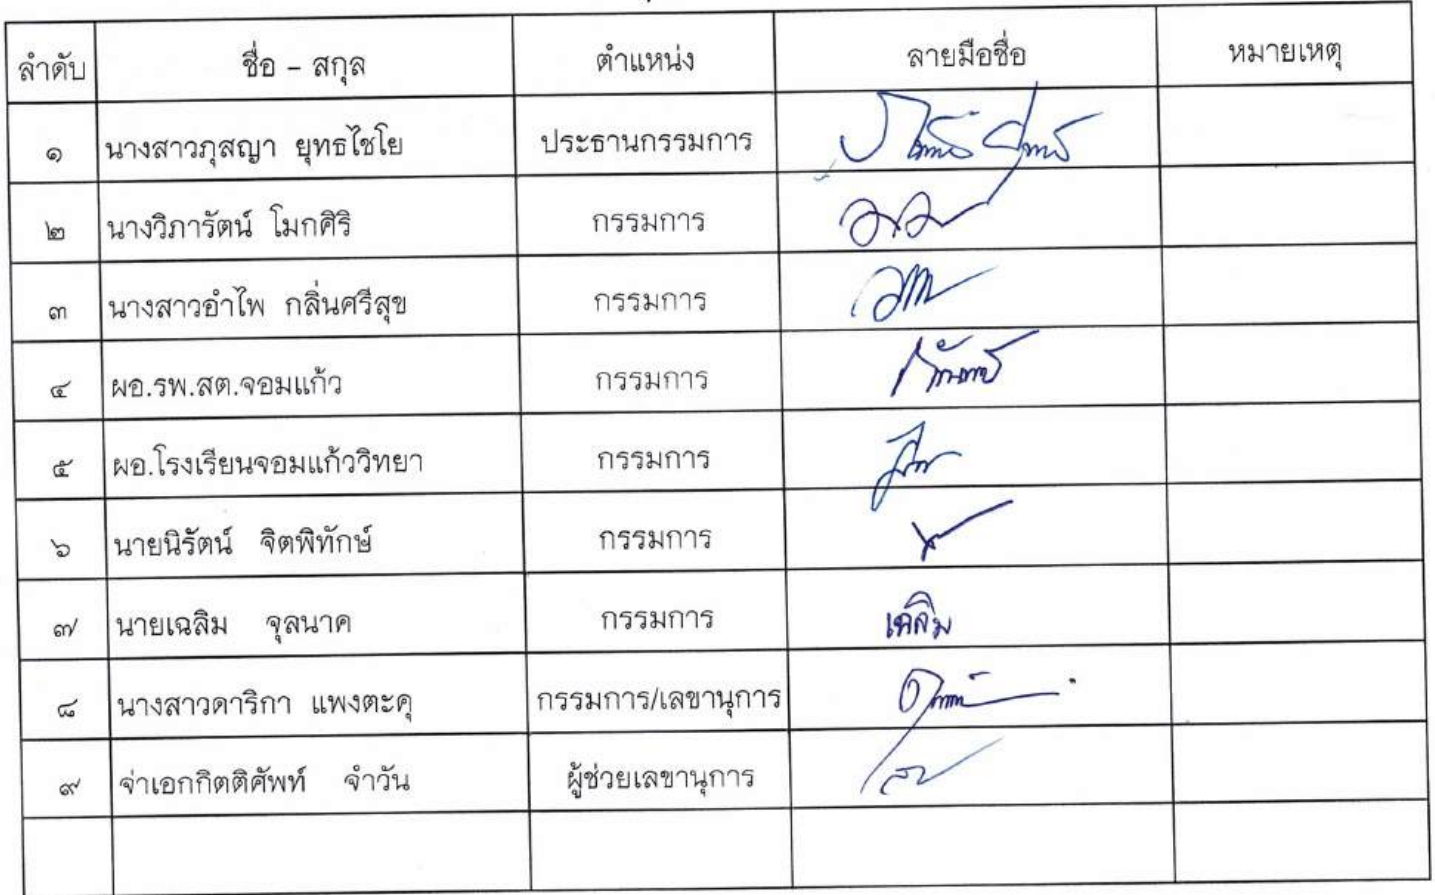 ลำดับ ชื่อ - สกุล ตำแหน่ง ลายมือชื่อ หมายเหตุ
๑ นางสาวภุสญา ยุทธไชโย ประธานกรรมการ
๒ นางวิภารัตน์ โมกศิริ กรรมการ
๓ นางสาวอำไพ กลิ่นศรีสุข กรรมการ
๔ ผอ.รพ.สต.จอมแก้ว กรรมการ
๕ ผอ.โรงเรียนจอมแก้ววิทยา กรรมการ
๖ นายนิรัตน์ จิตพิทักษ์ กรรมการ
๗ นายเฉลิม จุลนาค กรรมการ เฉลิม
๘ นางสาวดาริกา แพงตะคุ กรรมการ/เลขานุการ
๙ จ่าเอกกิตติศัพท์ จำวัน ผู้ช่วยเลขานุการ